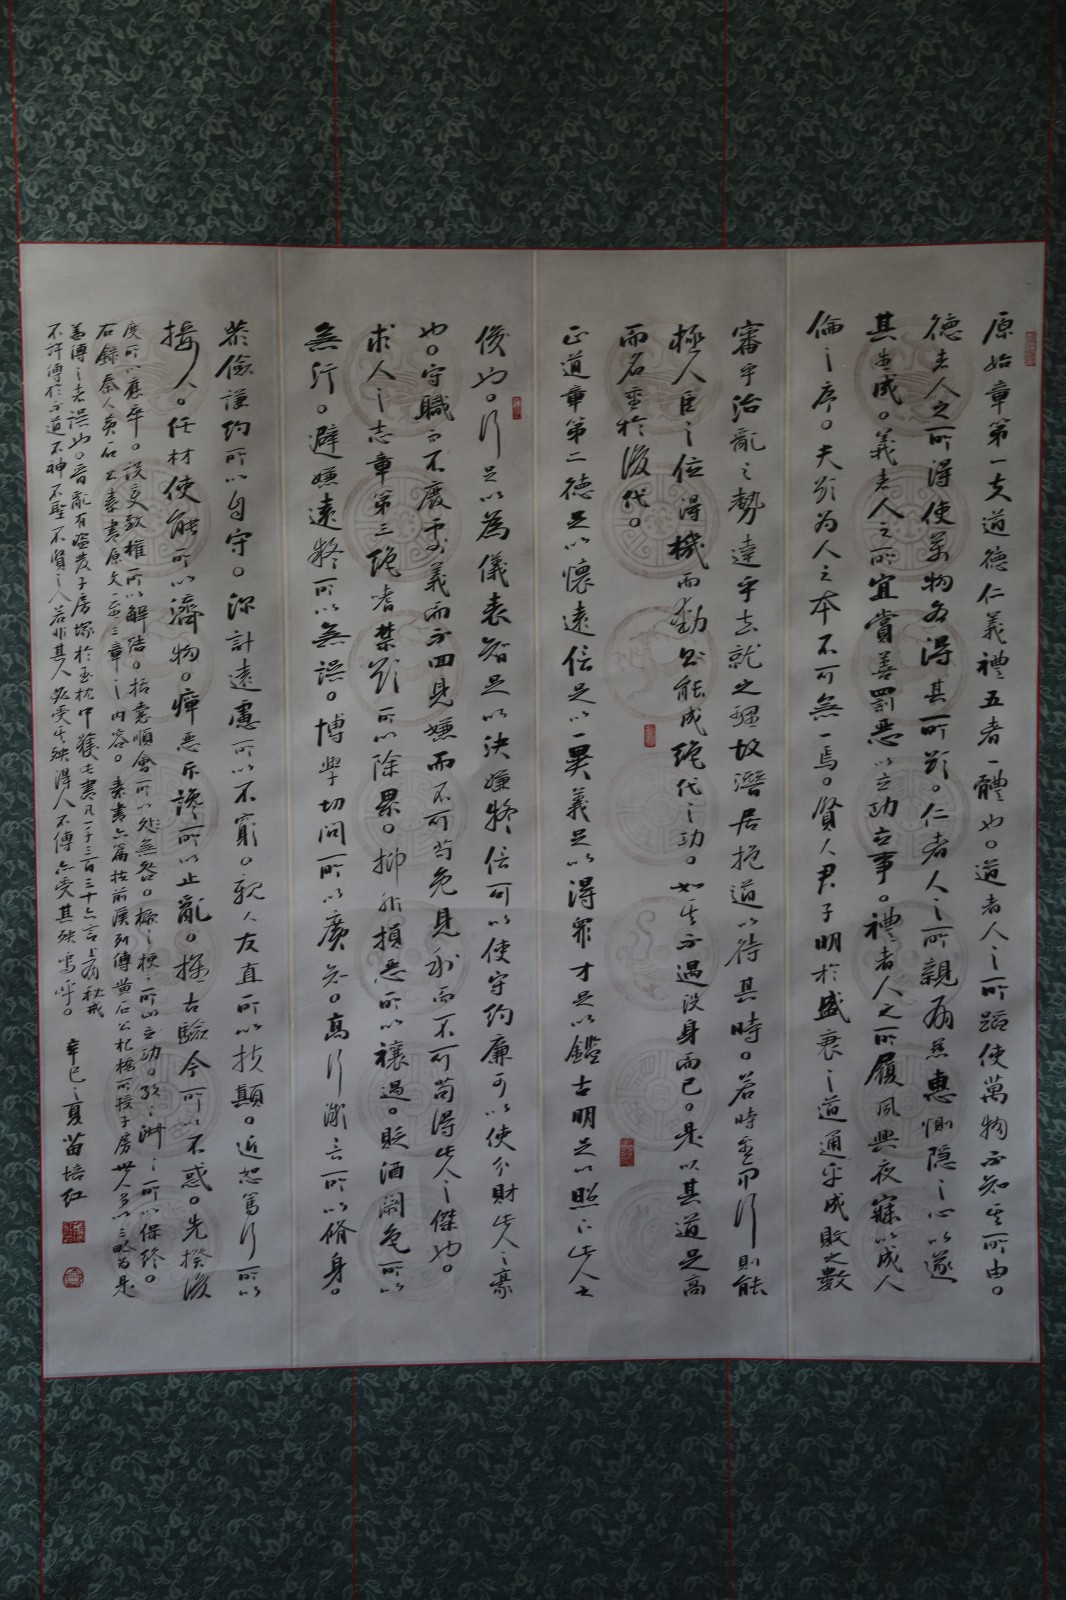 原始章第一夫道德仁義禮五者一體也。道者人之所蹈使萬物不知其所由。
德者人之所得使萬物各得其所欲。仁者人之所親有慈惠惻隱之心以遂
其生成。義者人之所宜賞善罰惡以立功立事。禮者人之所履夙興夜寐以成人
倫之序。夫欲为人之本不可無一焉。賢人君子明於盛衰之道通乎成敗之數
審乎治亂之勢達乎去就之理故潛居抱道以待其時。若時至而行則能
極人臣之位得機而動則能成絕代之功。如其不遇沒身而已。是以其道足高
而名重於後代。
正道章第二德足以懷遠信足以一異義足以得眾才足以鑑古明足以照下此人之
俊也。行足以為儀表智足以決嫌疑信可以使守約廉可以使分財此人之豪
也。守職而不廢處義而不回見嫌而不可苟免見利而不可苟得此人之傑也。
求人之志章第三絕嗜禁欲所以除累。抑非損惡所以禳過。貶酒闕色所以
無污。避嫌遠疑所以無誤。博學切問所以廣知。高行微言所以脩身。
恭儉謹約所以自守。深計遠慮所以不窮。親人友直所以扶顛。近恕篤行所以
接人。任材使能所以濟物。癉惡斥讒所以止亂。推古驗今所以不惑。先揆後
度所以應卒。設变致權所以解结。括囊順會所以無咎。橛橛梗梗所以立功。孜孜淑淑所以保終。
右錄秦人黄石公素書原文一至三章之内容。素書六篇按前漢列傳黄石公圯橋所授子房世人多以三略为是
盖傳之者誤也。晉亂有盜發子房塚於玉枕中獲此書凡一千三百三十六言上有秘戒
不許傳於不道不神不聖不賢之人若非其人必受其殃得人不傳亦受其殃嗚呼。
辛巳之夏苗培红